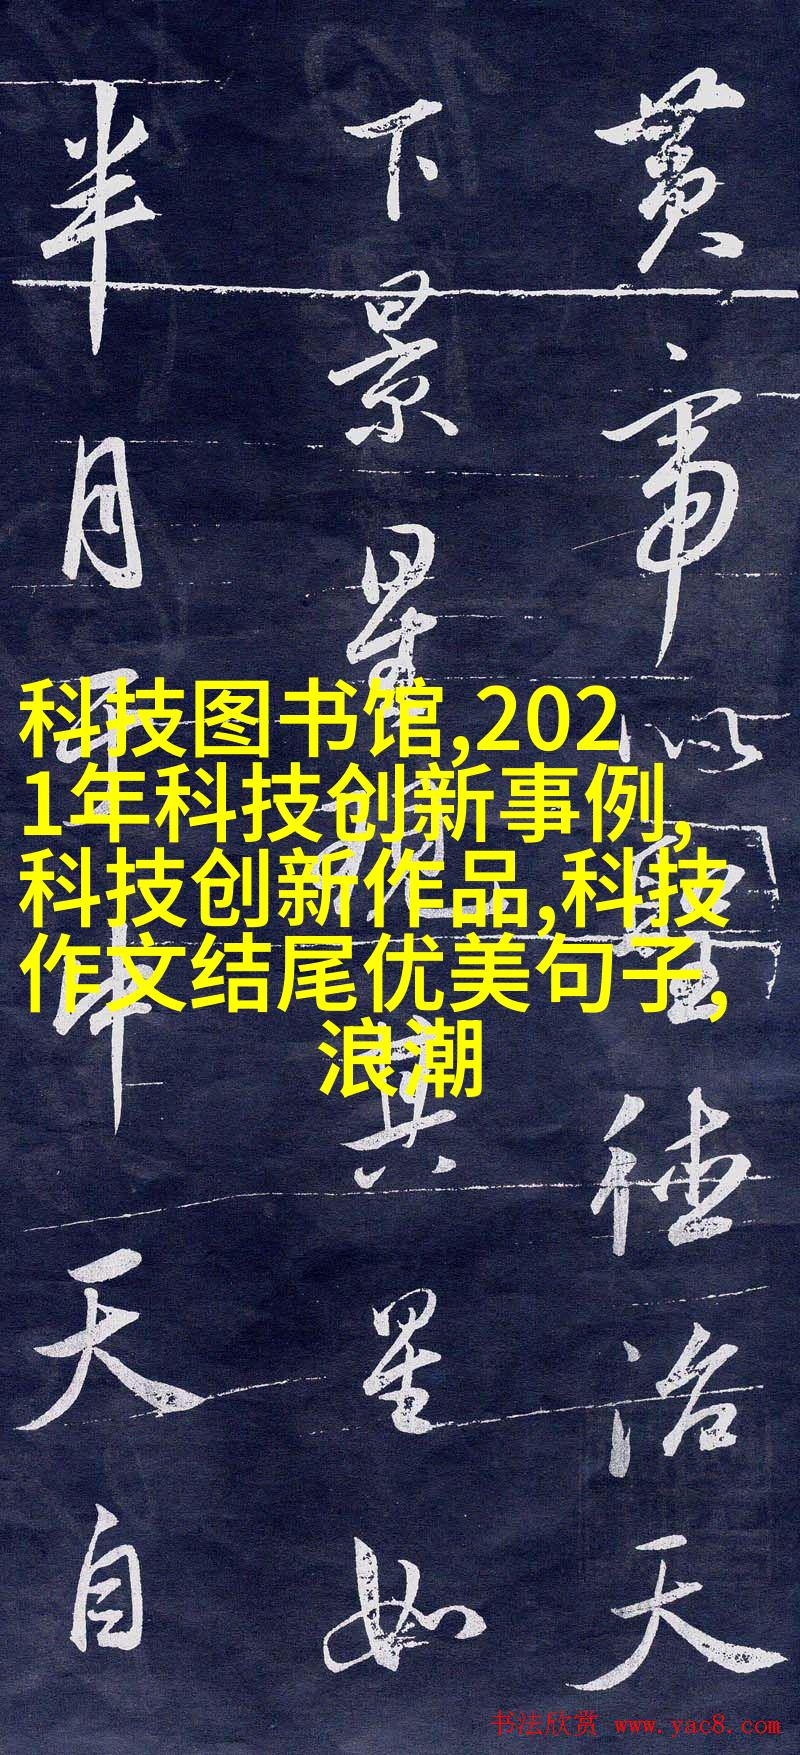 黄帝以聖德治天
下景星現其星如
半月平中天自
科技图书馆,202
1年科技创新事例,
科技创新作品,科技
作文结尾优美句子,
浪潮
书法欣赏 www.yac8.com